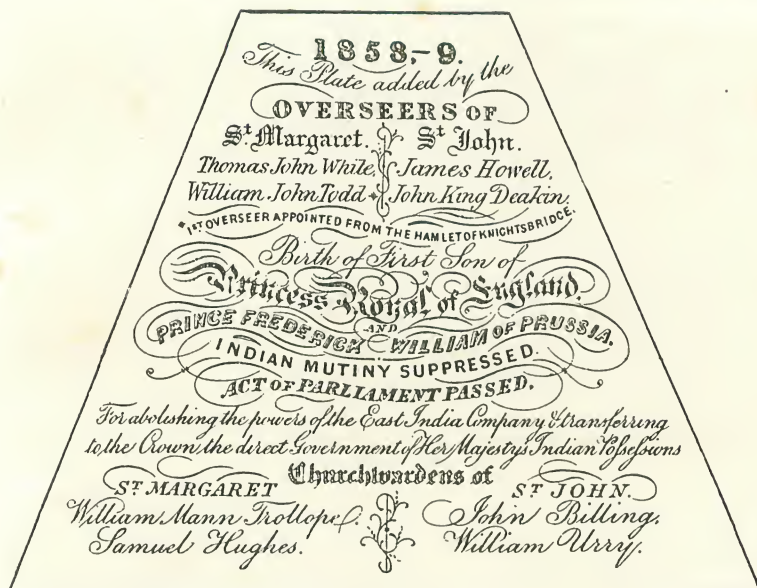 1858,-9.
This Plate added by the
OVERSEERS OF
St. Margaret. St John.
Thomas John White, James Howell,
William John Todd * John King Deakin.
*1ST OVERSEER APPOINTED FROM THE HAMLET OF KNIGHTSBRIDGE.
Birth of First Son of
Princess Royal of England.
AND
PRINCE FREDERICK WILLIAM OF PRUSSIA.
INDIAN MUTINY SUPPRESSED.
ACT OF PARLIAMENT PASSED.
For abolishing the powers of the East India Company & transferring
to the Crown the direct Government of Her Majestys Indian Poſseſsions
Churchwardens of
ST. MARGARET ST JOHN.
William Mann Trollope. John Billing.
Samuel Hughes. William Urry.